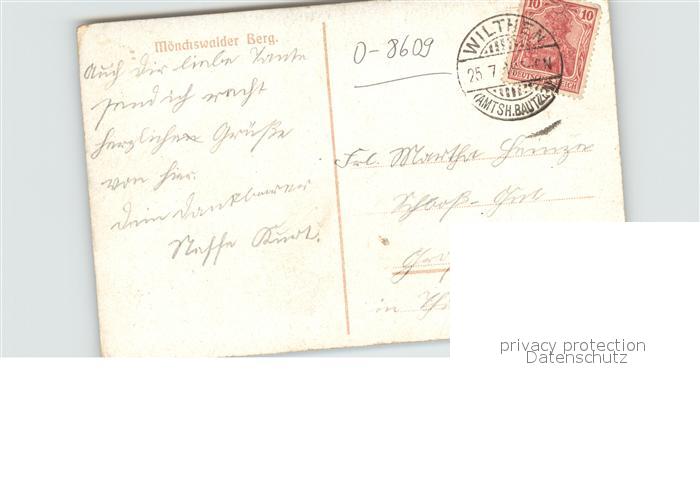 Mönchswalder Berg.
Auch Dir liebe Tante
send ich recht
herzlichen Grüße
von hier.
Dein dankbarer
Neffe Kurt.
O-8609
WILTHEN
25. 7.
(AMTSH. BAUTZEN)
10 10
DEUTSCHES REICH
Frl. Martha Heinze
Schloß-Gut
in
privacy protection
Datenschutz